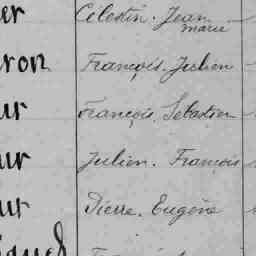 er Célestin. Jean
marie
ron François. Julien
ur François. Sébastien
ur Julien. François
ur Pierre. Eugène